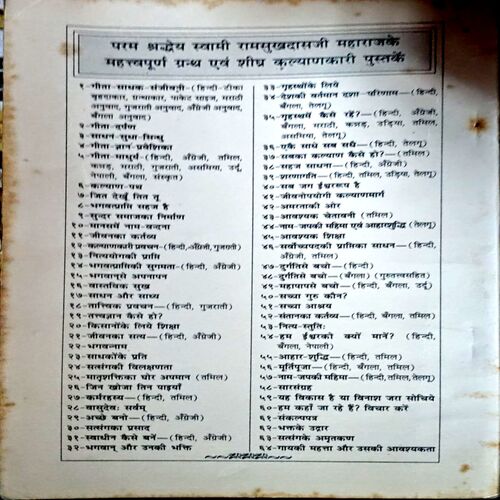 परम श्रद्धेय स्वामी रामसुखदासजी महाराजके
महत्त्वपूर्ण ग्रन्थ एवं शीघ्र कल्याणकारी पुस्तकें
१-गीता-साधक-संजीवनी-(हिन्दी-टीका
बृहदाकार, ग्रन्थाकार, पाकेट साइज, मराठी
अनुवाद, गुजराती अनुवाद, अँग्रेजी अनुवाद,
बँगला अनुवाद)
२-गीता-दर्पण
३-साधन-सुधा-सिन्धु
४-गीता-ज्ञान-प्रवेशिका
५-गीता-माधुर्य-(हिन्दी, अँग्रेजी, तमिल,
कन्नड़, मराठी, गुजराती, असमिया, उर्दू,
नेपाली, बँगला, संस्कृत)
६-कल्याण-पथ
७-जित देखूँ तित तू
८-भगवत्प्राप्ति सहज है
९-सुन्दर समाजका निर्माण
१०-मानसमें नाम-वन्दना
११-जीवनका कर्तव्य
१२-कल्याणकारी प्रवचन-(हिन्दी, अँग्रेजी, गुजराती)
१३-नित्ययोगकी प्राप्ति
१४-भगवत्प्राप्तिकी सुगमता-(हिन्दी, अँग्रेजी)
१५-भगवान्‌से अपनापन
१६-वास्तविक सुख
१७-साधन और साध्य
१८-तात्त्विक प्रवचन-(हिन्दी, गुजराती)
१९-तत्त्वज्ञान कैसे हो?
२०-किसानोंके लिये शिक्षा
२१-जीवनका सत्य-(हिन्दी, अँग्रेजी)
२२-भगवन्नाम
२३-साधकोंके प्रति
२४-सत्संगकी विलक्षणता
२५-मातृशक्तिका घोर अपमान (तमिल)
२६-जिन खोजा तिन पाइयाँ
२७-कर्मरहस्य-(हिन्दी, तमिल)
२८-वासुदेवः सर्वम्
२९-अच्छे बनो-(हिन्दी, अँग्रेजी)
३०-सत्संगका प्रसाद
३१-स्वाधीन कैसे बनें-(हिन्दी, अँग्रेजी)
३२-भगवान् और उनकी भक्ति
३३-गृहस्थोंके लिये
३४-देशकी वर्तमान दशा-परिणाम-(हिन्दी,
बँगला, तेलगू)
३५-गृहस्थमें कैसे रहें?-(हिन्दी, अँग्रेजी,
बँगला, मराठी, कन्नड़, उड़िया, तमिल,
असमिया, तेलगू)
३६-एकै साधे सब सधै-(हिन्दी, तेलगू)
३७-सबका कल्याण कैसे हो?-(तमिल)
३८-सहज साधना-(हिन्दी, अँग्रेजी)
३९-शरणागति-(हिन्दी, तमिल, उड़िया, तेलगू)
४०-सब जग ईश्वररूप है
४१-जीवनोपयोगी कल्याणमार्ग
४२-अमरताकी ओर
४३-आवश्यक चेतावनी (तमिल)
४४-नाम-जपकी महिमा एवं आहारशुद्धि (तेलगू)
४५-आवश्यक शिक्षा
४६-सर्वोच्चपदकी प्राप्तिका साधन-(हिन्दी,
अँग्रेजी, तमिल)
४७-दुर्गतिसे बचो-(हिन्दी)
४८-दुर्गतिसे बचो-(बँगला) (गुरुतत्त्वसहित)
४९-महापापसे बचो-(हिन्दी, बँगला, उर्दू)
५०-सच्चा गुरु कौन?
५१-सच्चा आश्रय
५२-संतानका कर्तव्य-(हिन्दी, बँगला, तमिल)
५३-नित्य-स्तुतिः
५४-हम ईश्वरको क्यों मानें? (हिन्दी,
बँगला, नेपाली)
५५-आहार-शुद्धि-(हिन्दी, तमिल)
५६-मूर्तिपूजा-(हिन्दी, बँगला, तमिल)
५७-नाम-जपकी महिमा-(हिन्दी, तमिल, तेलगू)
५८-सारसंग्रह
५९-यह विकास है या विनाश जरा सोचिये
६०-हम कहाँ जा रहे हैं? विचार करें
६१-संकल्पपत्र
६२-भक्तके उद्गार
६३-सत्संगके अमृतकण
६४-गायकी महत्ता और उसकी आवश्यकता